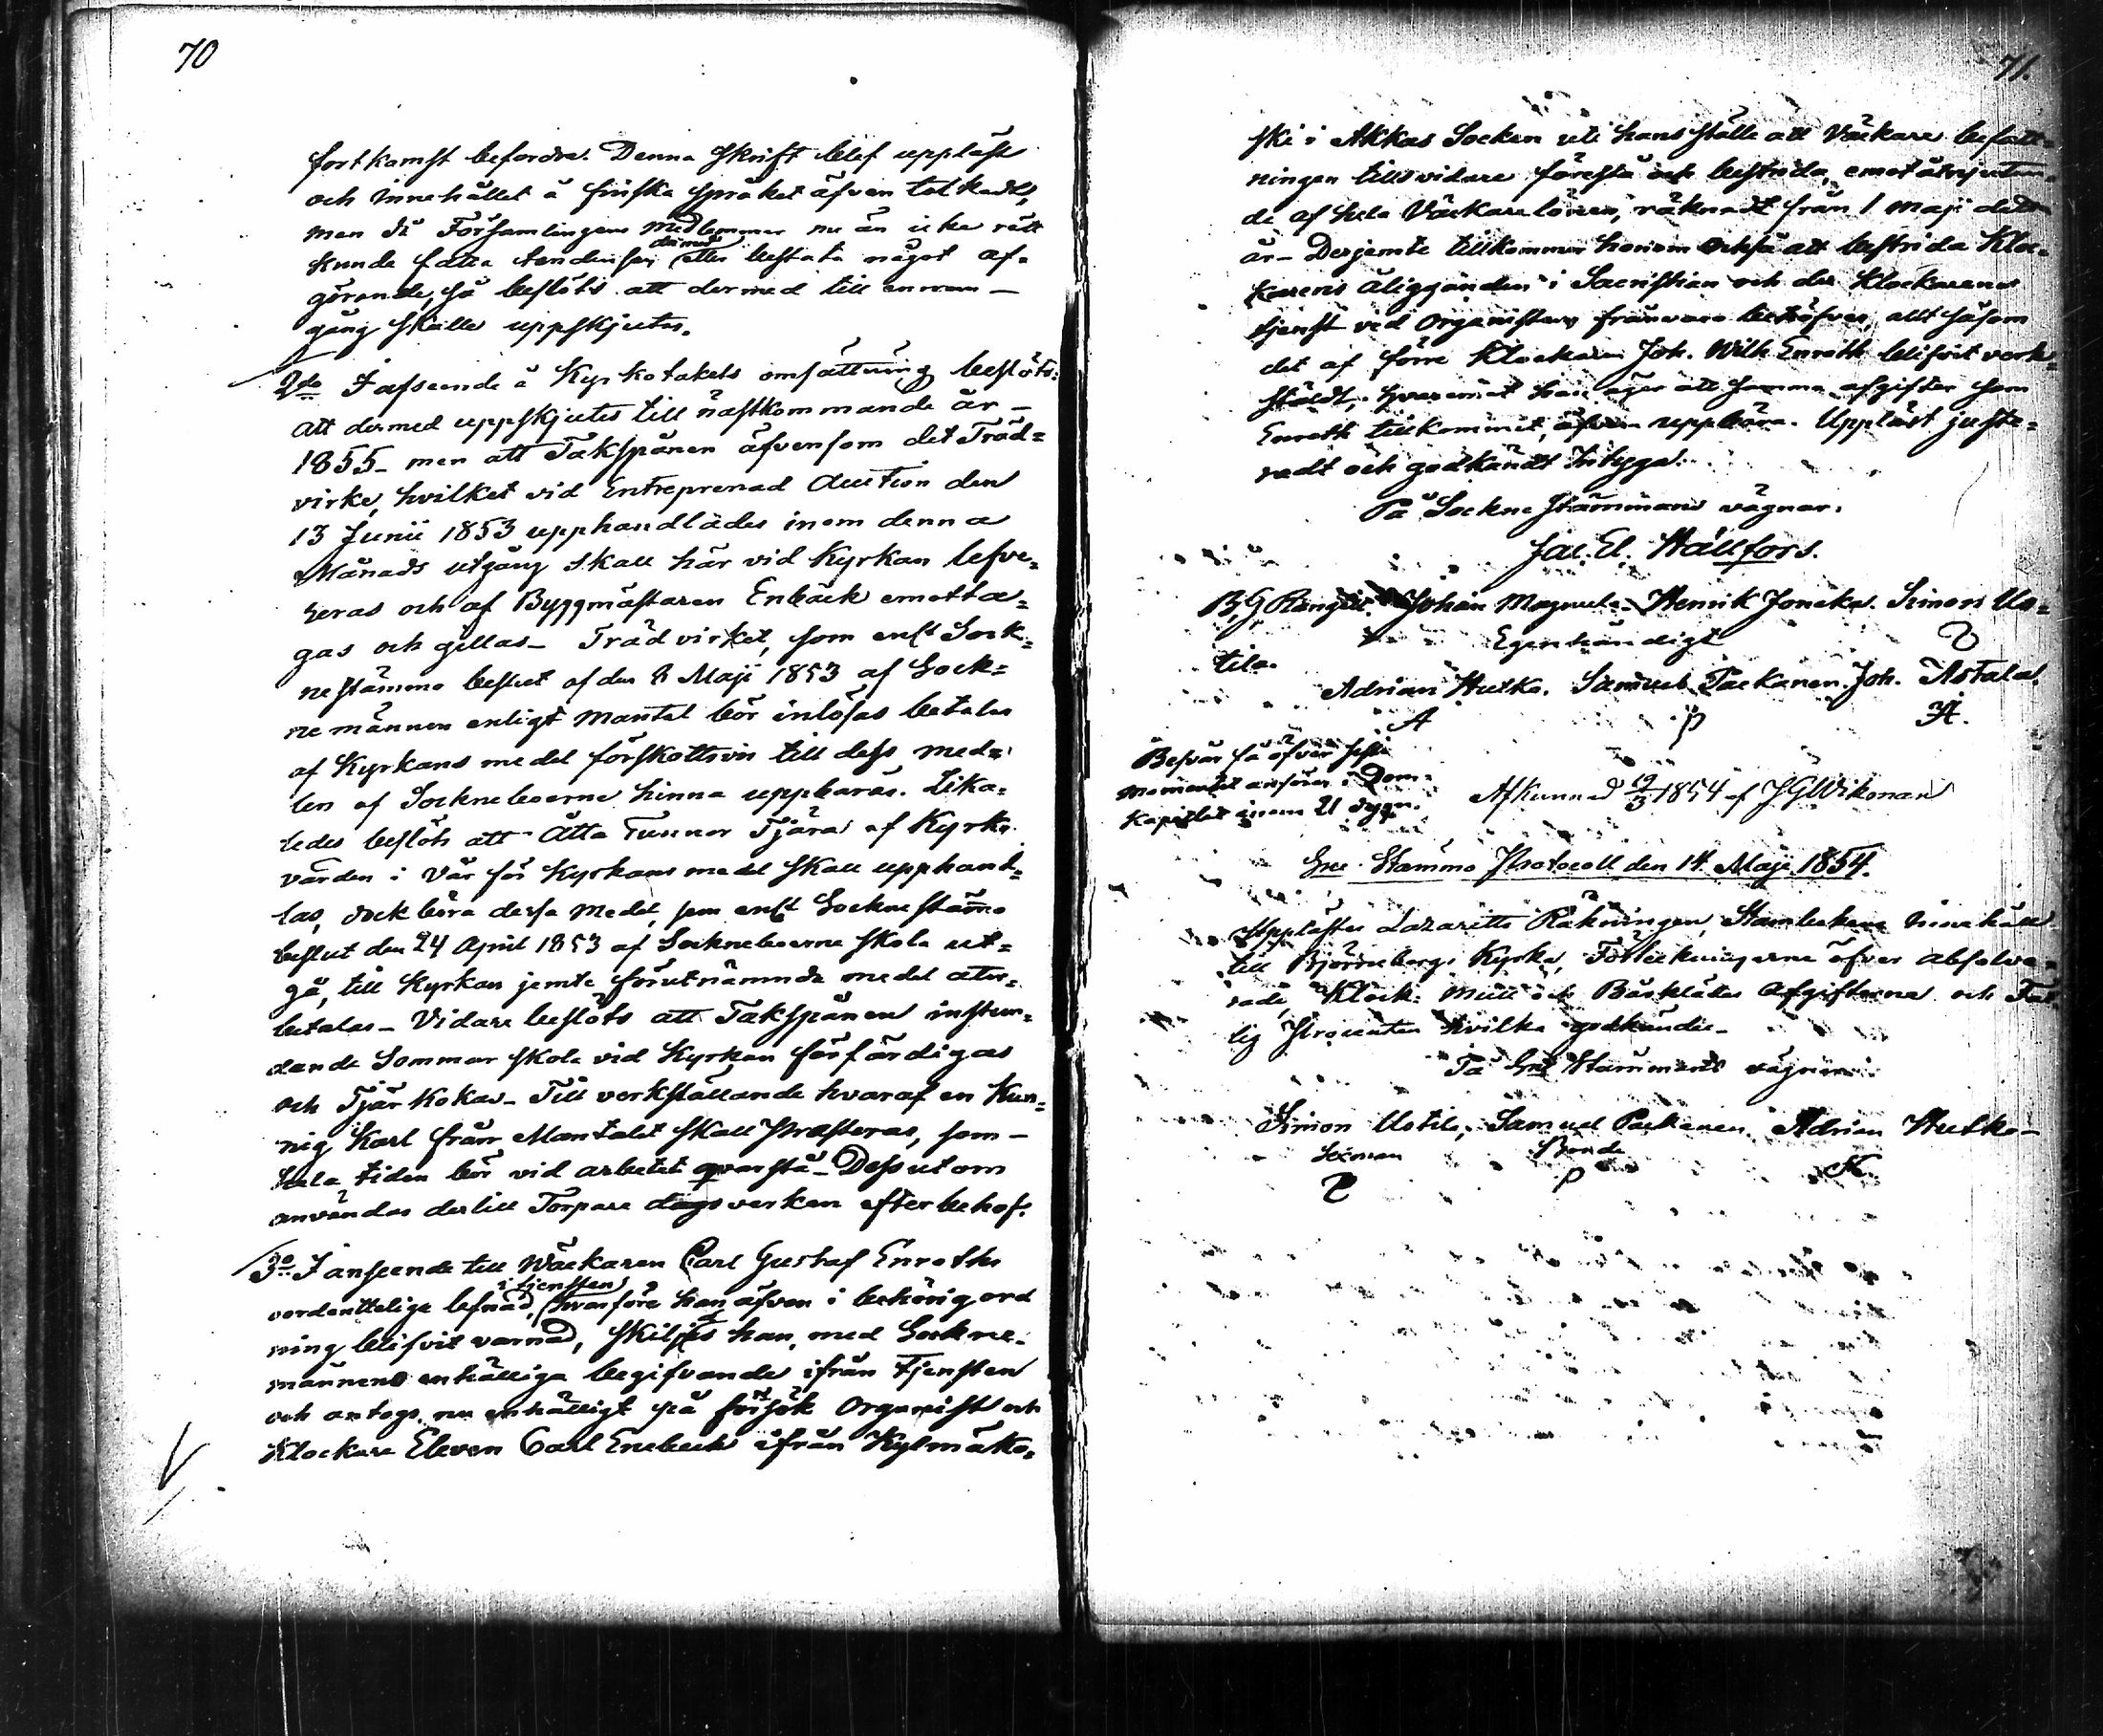 70
fortkomst befordra. Denna Skrift blef uppläst
och innehållet å finska språket äfven tolkadt,
men då Församlingens medlemmar nu än icke rätt
kunde fatta tendensen eller besluta något af-
görande, så beslöts att dermed till annan
gång skulle uppskjutas.
2do I afseende å Kyrkotakets omsättning beslöts:
att dermed uppskjutes till nästkommande år
1855 - men att Takspånen äfvensom det Träd=
virke, hvilket vid Entreprenad Auction den
13 Junii 1853 upphandlades inom denna
Månads utgång skall här vid Kyrkan lefve=
reras och af Byggmästaren Enbäck emotta=
gas och gillas - Trädvirket, som enligt Sock=
nestämmo beslut af den 8 Maji 1853 af Sock=
nemännen enligt mantal bör inlösas betalas
af Kyrkans medel förskottsvis till dess med=
len af Sockneboerne hinna uppbäras. Lika=
ledes beslöts att Åtta Tunnor Tjära af Kyrko
värden i Vår för Kyrkans medel skall upphand=
las, dock böra dessa medel, som enligt Sockne stämmo
beslut den 24 April 1853 af Socknebeorne skola ut=
gå, till Kyrkan jemte förutnämnde medel åter=
betalas - Vidare beslöts att Takspånen instun=
dande Sommar skola vid Kyrkan förfärdigas
och Tjär kokas - Till verkställande hvaraf en Kun=
nig Karl från Mantalet skall Præsteras, som -
hela tiden bör vid arbetet qvarstå - Dessutom
användas dertill Torpare dagsverken efter behof.
3o I anseende till Wäckaren Carl Gustaf Enroths
i tjensten
oordentelige lefnad, hvarföre han äfven i behörig ord
ning blifvit varnad, skiljes han, med Sockne-
männens enhälliga begifvande ifrån tjensten
och antogs nu enhälligt på försök Organist och
Klockare Eleven Carl Enebeck ifrån Kylmäko=
71.
ski i Akkas Socken uti hans ställe att Väckare befatt=
ningen tillsvidare förestå och bestrida, emot åtnjutan=
de af hela Väckarelönen, räknadt från 1 Maji detta
år - Derjemte tillkommer honom också att bestrida Kloc=
karens åligganden i Sacristian och der Klockarens
tjenst vid Organistens frånvaro behöfves, allt såsom
det af förre Klockaren Joh. Wilh Enroth blifvit verk=
stäldt, hvaremot han äger att samma afgifter som
Enroth tillkommit, äfven uppbära. Uppläst juste=
radt och godkändt intyga.
På Sockne stämmans vägnar.
Jac. El. Hällfors.
Johan Magnula. Henrik Joncka. Simon Us=
Egenhändigt
tila.
Adrian Hutko. Samuel Packanen. Joh. Astala.
A P A.
Besvär få öfver
momentet anföras i Dom-
Kapitlet inom 21 dygn.
Afkunnad 19/3 1854 af J G Wikman
Sne Stämmo Protocoll den 14 Maji 1854.
Upplästes Lazaretts Räkningen, Stambokens innehåll
till Björneborgs Kyrka, Förteckningarne öfver absolve=
rade, Klock- Mull och Bårklädes afgifterna och Fat
lig Procenten hvilka godkändes -
På Sne Stämmans vägnar:
Simon Ustila, Samuel Packanen. Adrian Hutko -
Sexman Bonde
P